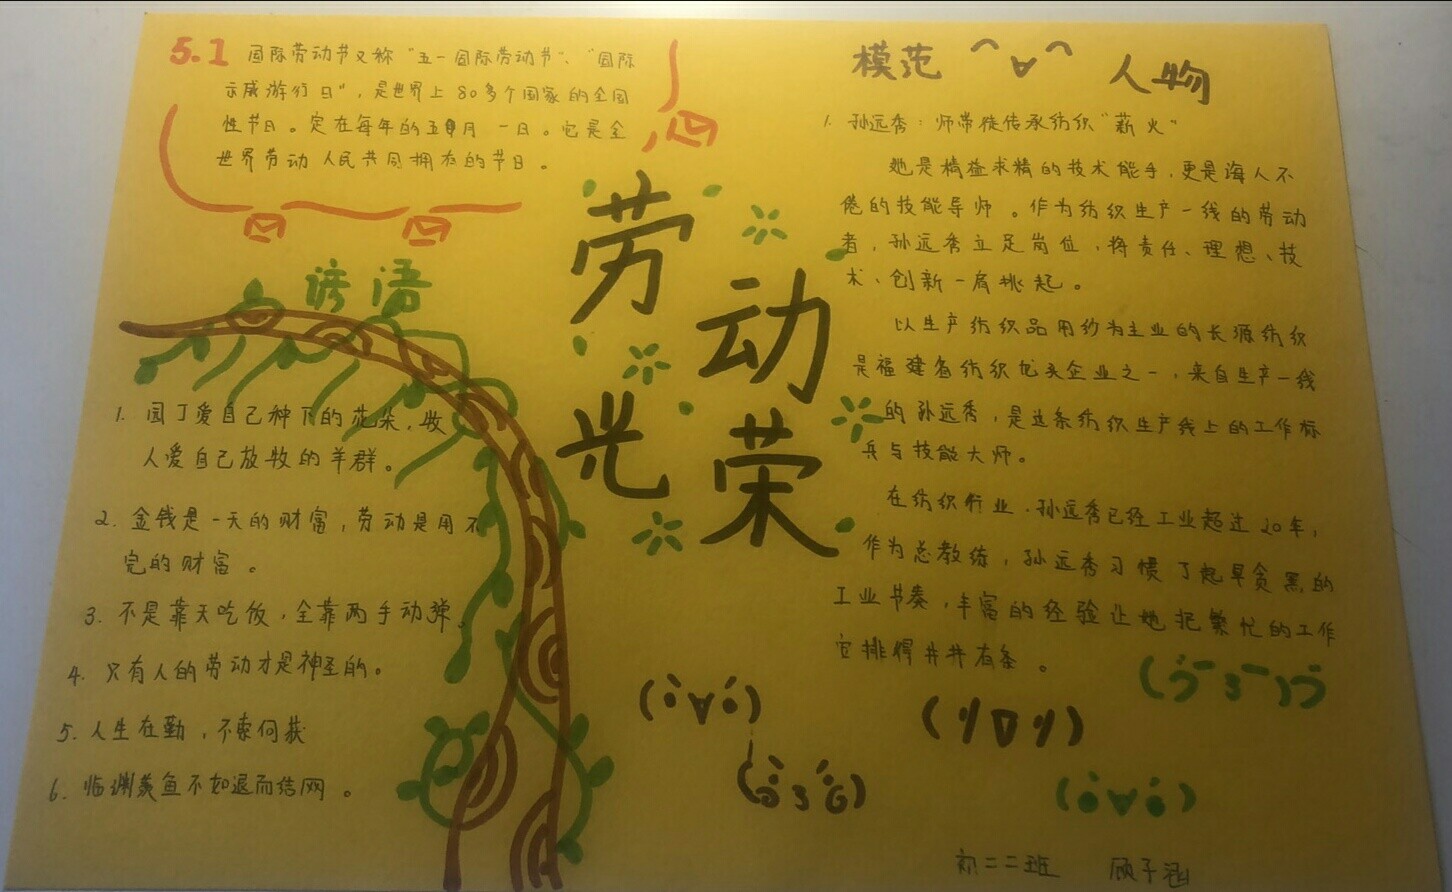 5.1 国际劳动节又称"五一国际劳动节"、"国际
示威游行日"，是世界上80多个国家的全国
性节日。定在每年的五月一日。它是全
世界劳动人民共同拥有的节日。
谚语
1. 园丁爱自己种下的花朵，牧
人爱自己放牧的羊群。
2. 金钱是一天的财富，劳动是用不
完的财富。
3. 不是靠天吃饭，全靠两手动弹。
4. 只有人的劳动才是神圣的。
5. 人生在勤，不索何获
6. 临渊羡鱼不如退而结网。
劳动
光荣
模范 人物
1. 孙远秀：师带徒传承纺织"薪火"
她是精益求精的技术能手，更是诲人不
倦的技能导师。作为纺织生产一线的劳动
者，孙远秀立足岗位，将责任、理想、技
术、创新一肩挑起。
以生产纺织品用纱为主业的长源纺织
是福建省纺织龙头企业之一，来自生产一线
的孙远秀，是这条纺织生产线上的工作标
兵与技能大师。
在纺织行业，孙远秀已经工业超过20年，
作为总教练，孙远秀习惯了起早贪黑的
工业节奏，丰富的经验让她把繁忙的工作
安排得井井有条。
初二二班 顾子涵